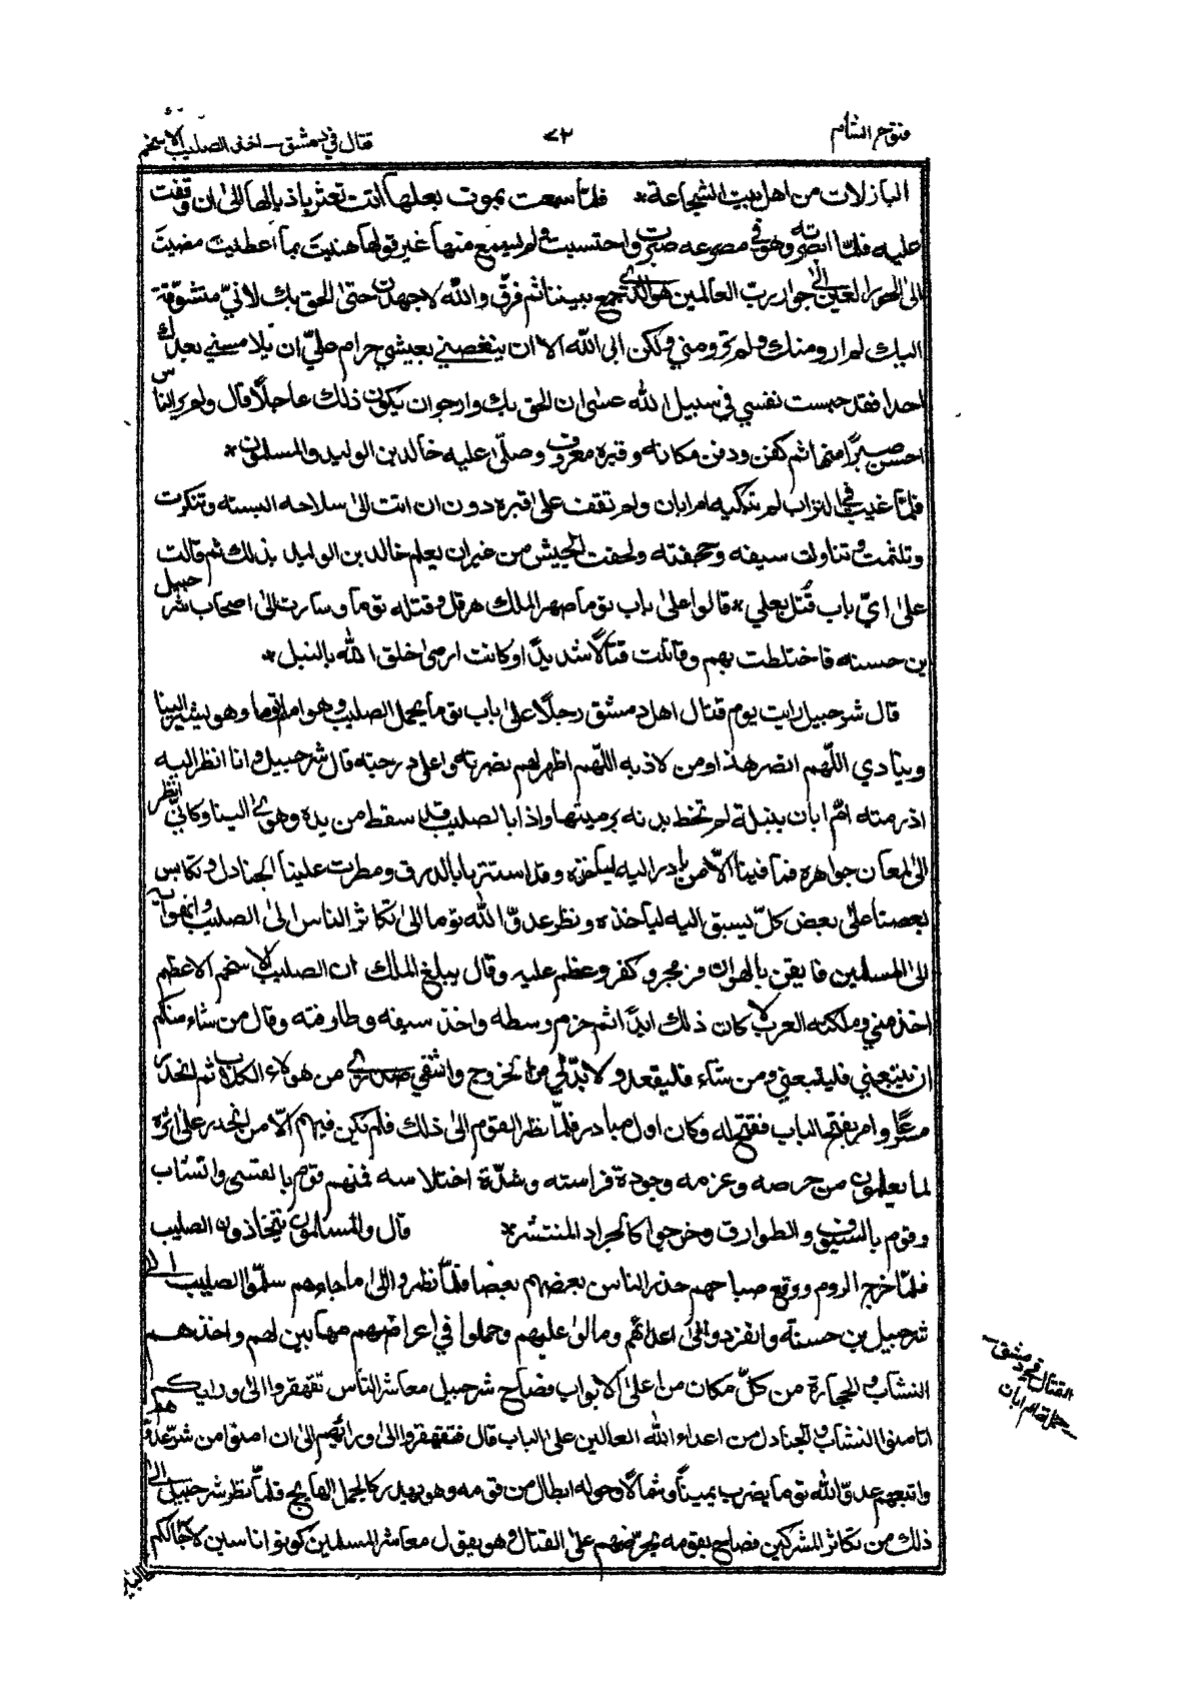 فتوح الشأم
٧٢
قتال في دمشق - اخذ الصليب الاسخم
البازلات من اهل بيت الشجاعة * فلمّا سمعت بموت بعلها اتت تعثر باذيالها الى ان وقفت
عليه فلمّا ابصرته وهو في مصرعه صبرت واحتسبت ولم يسمع منها غير قولها هنيت بما اعطيت مضيت
الى الحور العين الى جوار ربّ العالمين هو الذي جمع بيننا ثم فرّق والله لاجهدن حتى الحق بك لانيّ متشوّقة
اليك لم ارو منك ولم ترو مني ولكن ابى الله الا ان ينغصني بعيشي حرام عليّ ان يلامسني بعدك
احد فقد حبست نفسي في سبيل الله عسى ان الحق بك وارجو ان يكون ذلك عاجلًا قال ولم ير الناس
احسن صبرًا منها ثم كفن ودفن مكانه وقبره معروف وصلّى عليه خالد بن الوليد والمسلمون *
فلمّا غيب في التراب لم تبكيه ام ابان ولم تقف على قبره دون ان اتت الى سلاحه البسته وتنكرت
وتلثمت وتناولت سيفه وحجفته ولحقت الجيش من غير ان يعلم خالد بن الوليد بذلك ثم قالت
على ايّ باب قُتل بعلي * قالوا على باب توما صهر الملك هرقل وقتله توما وسارت الى اصحاب شرحبيل
بن حسنه فاختلطت بهم وقاتلت قتالًا شديدًا وكانت ارمى خلق الله بالنبل *
قال شرحبيل رايت يوم قتال اهل دمشق رجلًا على باب توما يحمل الصليب وهو امام توما وهو يشير الينا
وينادي اللّهم انصر هذا ومن لاذ به اللّهم اظهر لهم نصرته واعلِ درجته قال شرحبيل وانا انظر اليه
اذ رمته امّ ابان بنبلة لم تخط بدنه برميتها واذا بالصليب قد سقط من يده وهوى الينا وكانّي انظر
الى لمعان جواهره فما فينا الّا من بادر اليه لياخذه وقد استتر بالدرق ومطرت علينا الجنادل وتكابس
بعضنا على بعض كلّ يسبق اليه لياخذه ونظر عدوّ الله توما الى تكاثر الناس الى الصليب وانهوا به
الى المسلمين فايقن بالهوان وزمجر وكفر وعظم عليه وقال يبلغ الملك ان الصليب الاسخم الاعظم
اخذ مني وملكته العرب لا كان ذلك ابدًا ثم حزم وسطه واخذ سيفه وطارقته وقال من شاء منكم
ان يتبعني فليتبعني ومن شاء فليقعد ولا بدّ لي من الخروج واشتفي صدري من هولاء الكلاب ثم انحدر
مسرعًا وامر بفتح الباب ففتح له وكان اول مبادر فلمّا نظر القوم الى ذلك فلم تكن فيهم الّا من انحدر على اثره
لما يعلمون من حرصه وعزمه وجودة فراسته وشدّة اختلاسه فمنهم قوم بالقسي والنشاب
وقوم بالسيوف والطوارق وخرجوا كالجراد المنتشر * قال والمسلمون يتخاذون الصليب
فلمّا خرج الروم ووقع صياحهم حذر الناس بعضهم بعضًا فلمّا نظروا الى ما جاءهم سلّموا الصليب الى
شرحبيل بن حسنة وانفردوا الى اعدائهم ومالوا عليهم وحملوا في اعراضهم مهابين لهم واخذهم
النشاب والحجارة من كلّ مكان من اعلى الابواب فصاح شرحبيل معاشر الناس تقهقروا الى ورايكم
لتامنوا النشاب والجنادل من اعداء الله العالين على الباب قال فتقهقروا الى ورائهم الى ان امنوا من شرّ عدوّهم
واتبعهم عدوّ الله توما يضرب يمينًا وشمالًا وحوله ابطال من قومه وهو يهدر كالجمل الهايج فلمّا نظر شرحبيل الى
ذلك من تكاثر المشركين فصاح بقومه يحرّضهم على القتال وهو يقول معاشر المسلمين كونوا ناسين لاجالكم
طالبين
القتال في دمشق -
حملة ام ابان